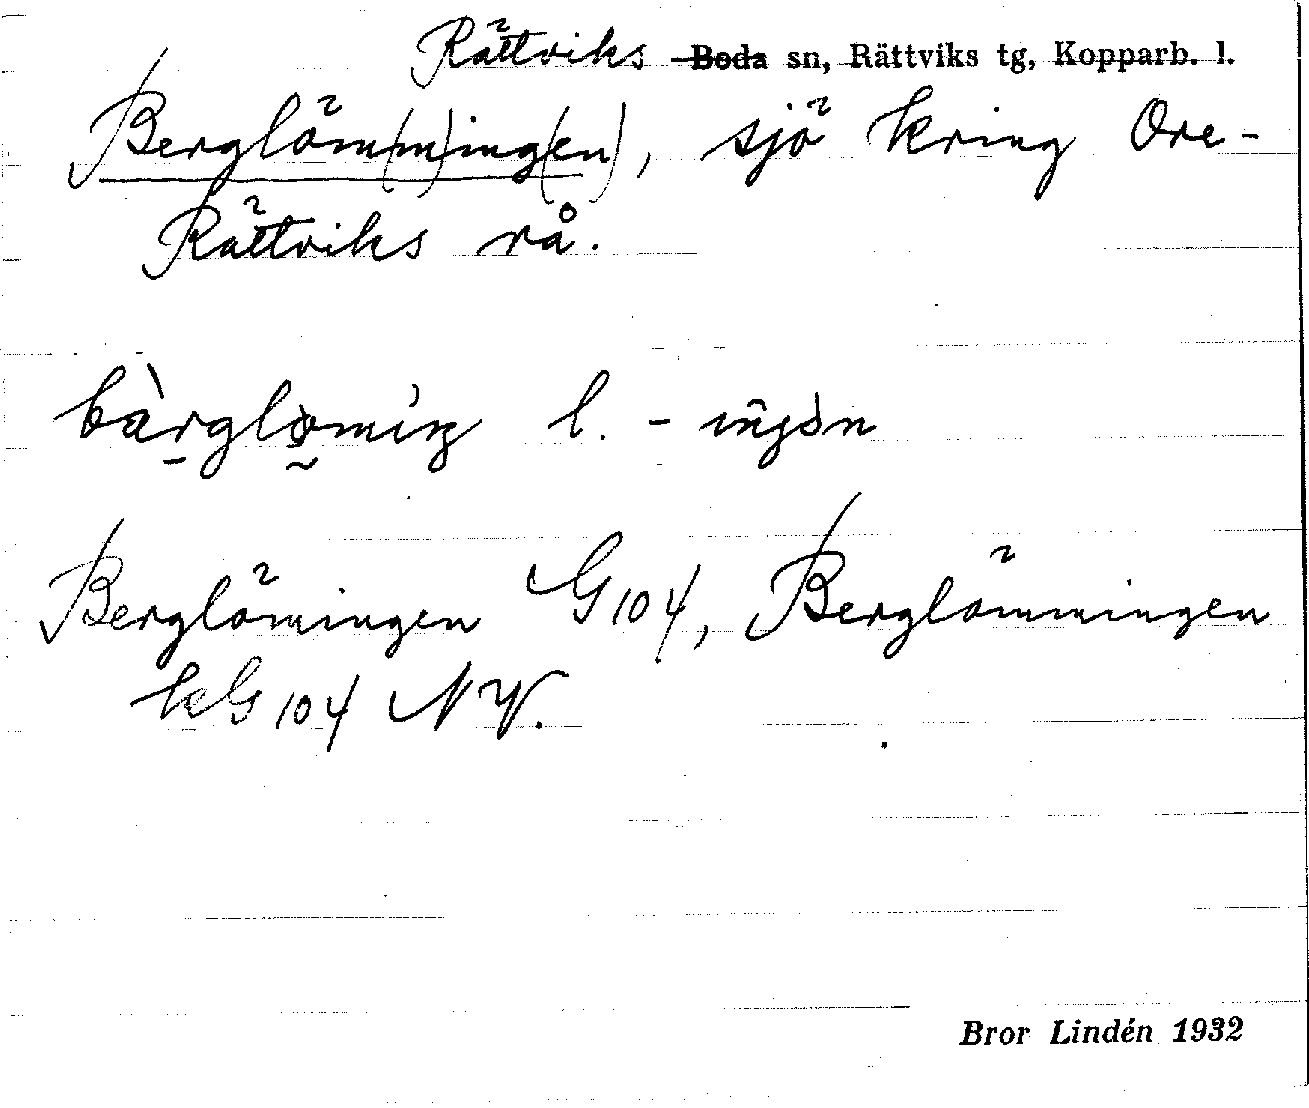 Rättviks Boda sn, Rättviks tg, Kopparb. l.
Berglöm(m)ing(en), sjö kring Ore-
Rättviks rå.
bàrglomiŋ l. - iŋən
Berglömingen G 104, Berglömmingen
kG 104 NV.
Bror Lindén 1932